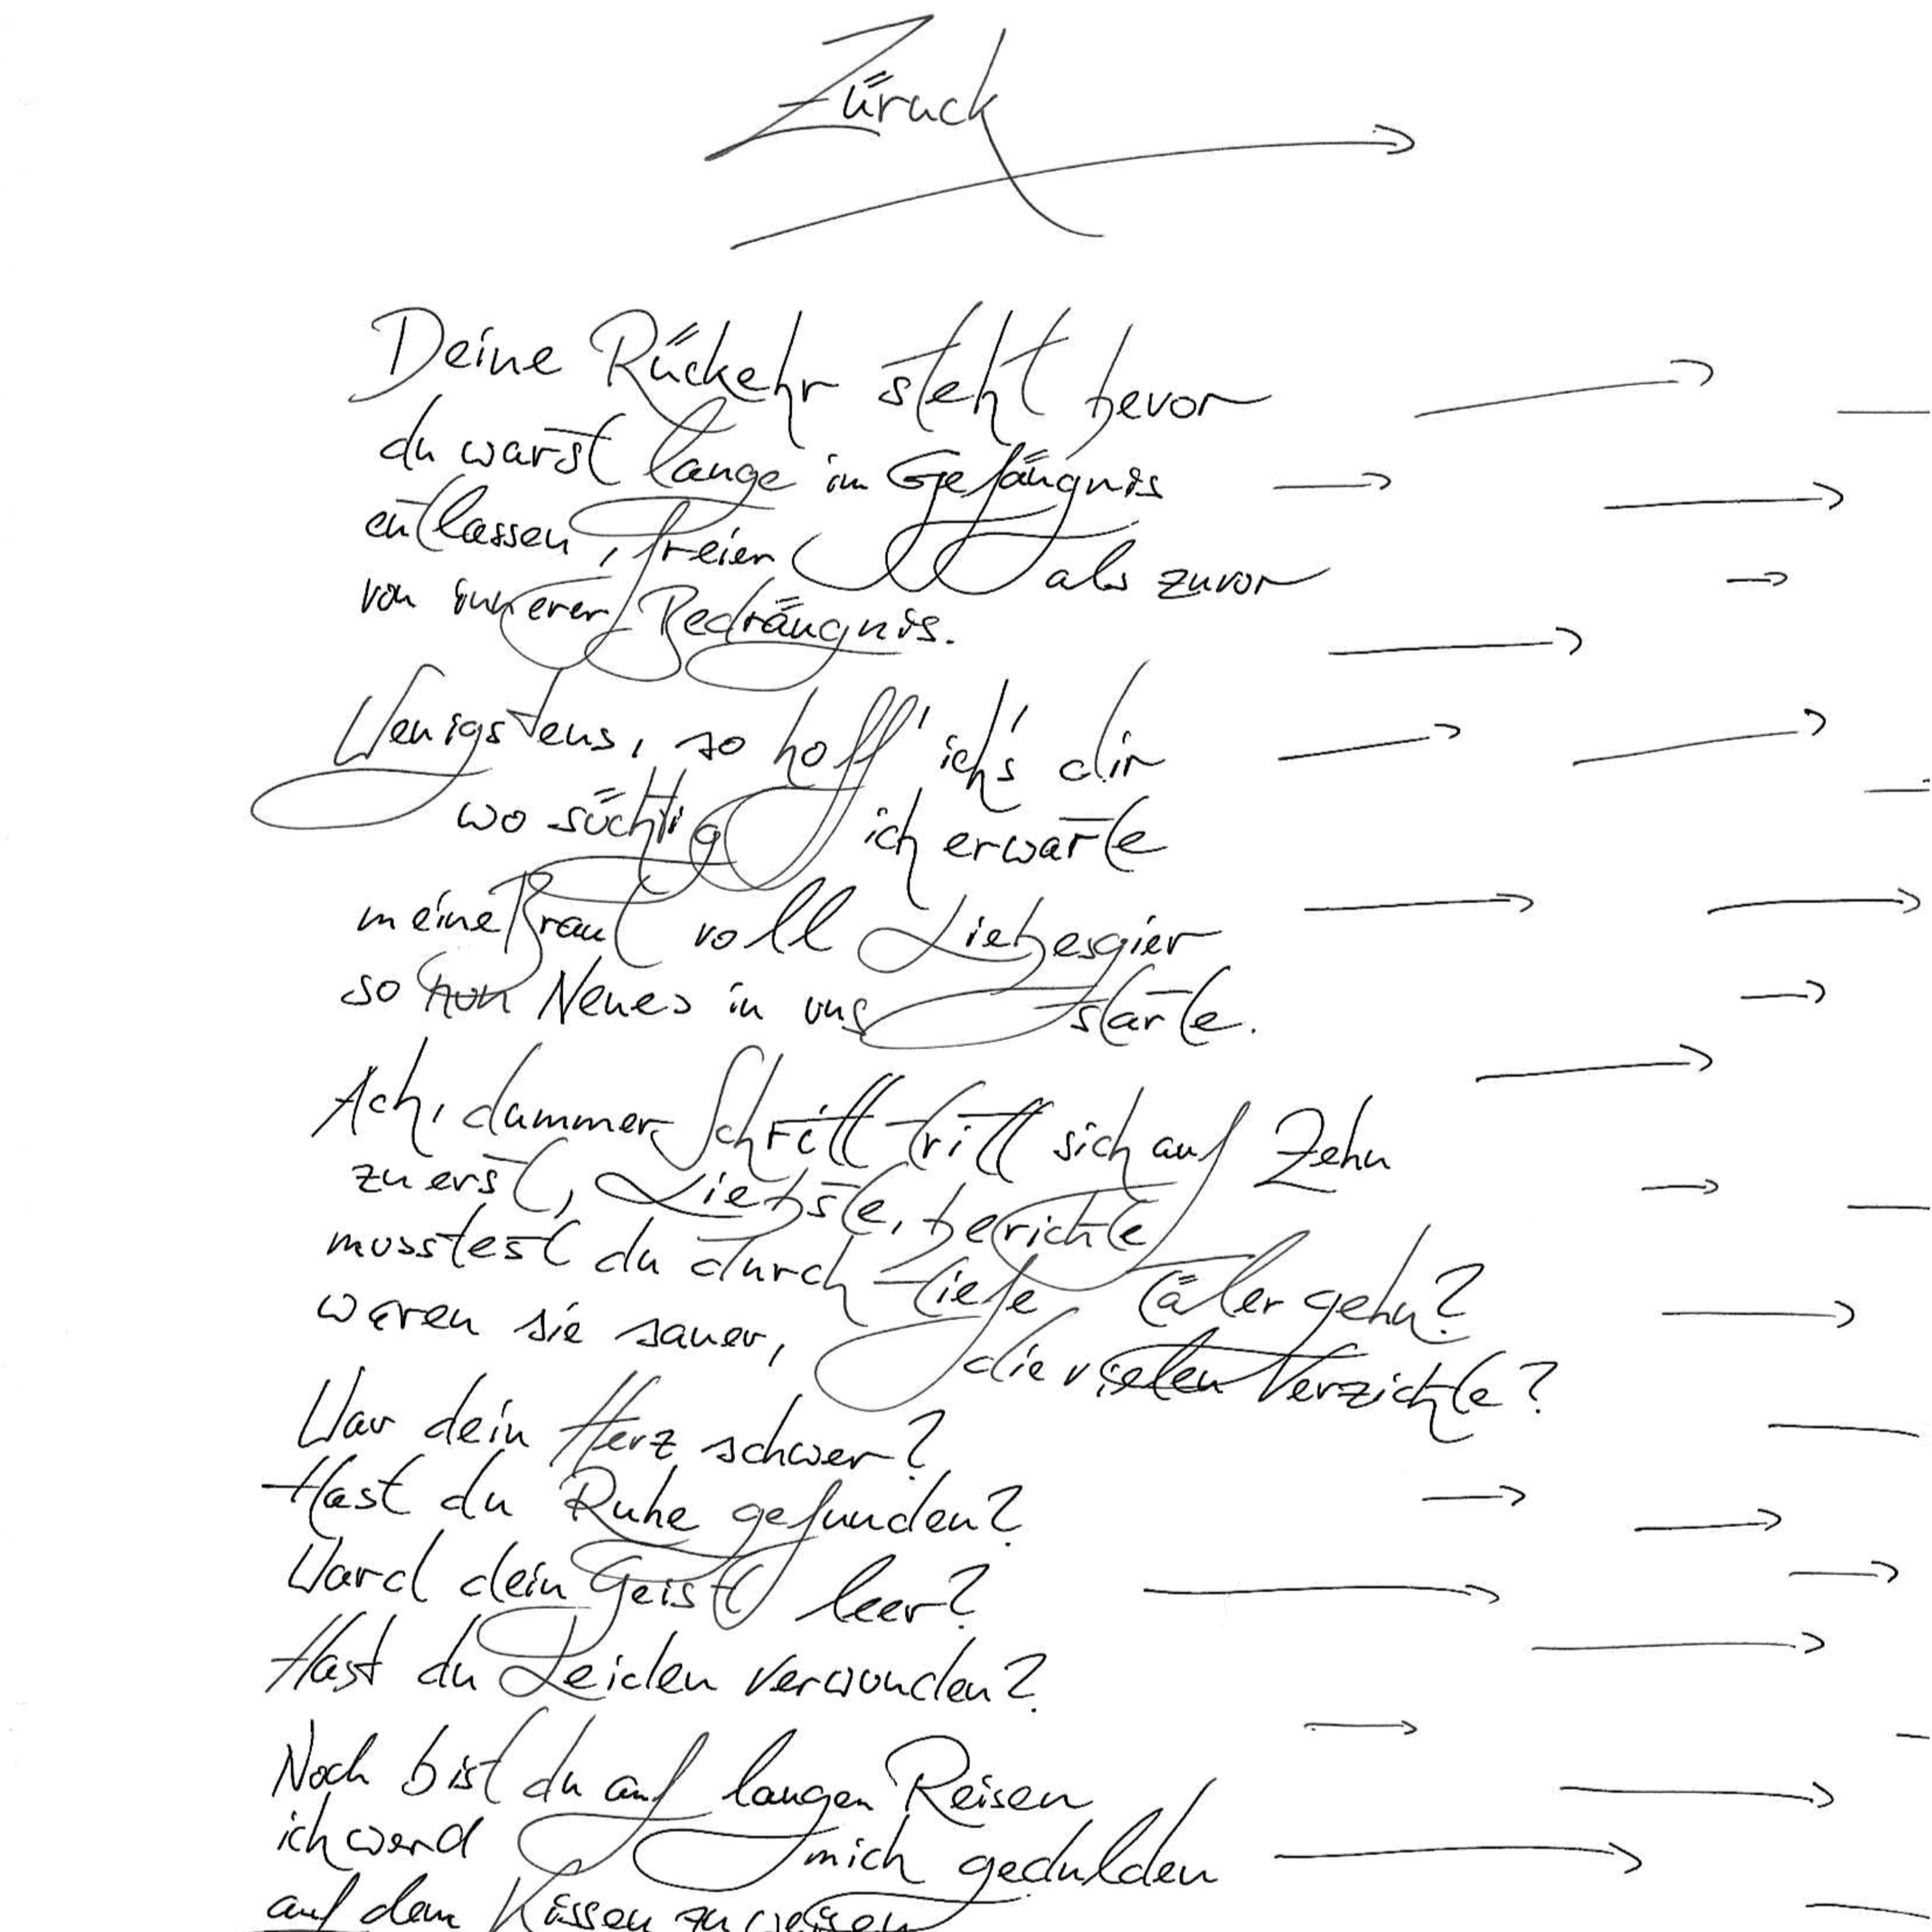 Züruck
Deine Rückehr steht bevor
du warst lange im Gefängnis
entlassen, freier als zuvor
von innerer Bedrängnis.
Wenigstens, so hoff' ich's dir
wo süchtig ich erwarte
meine Braut voll Liebesgier
so nun Neues in uns starte.
Ach, dummer Schritt tritt sich auf Zehn
zuerst, Liebste, berichte
musstest du durch tiefe Täler gehn?
waren sie sauer, die vielen Verzichte?
War dein Herz schwer?
Hast du Ruhe gefunden?
Ward dein Geist leer?
Hast du Leiden verwunden?
Noch bist du auf langen Reisen
ich werd mich gedulden
auf dem Kissen zu